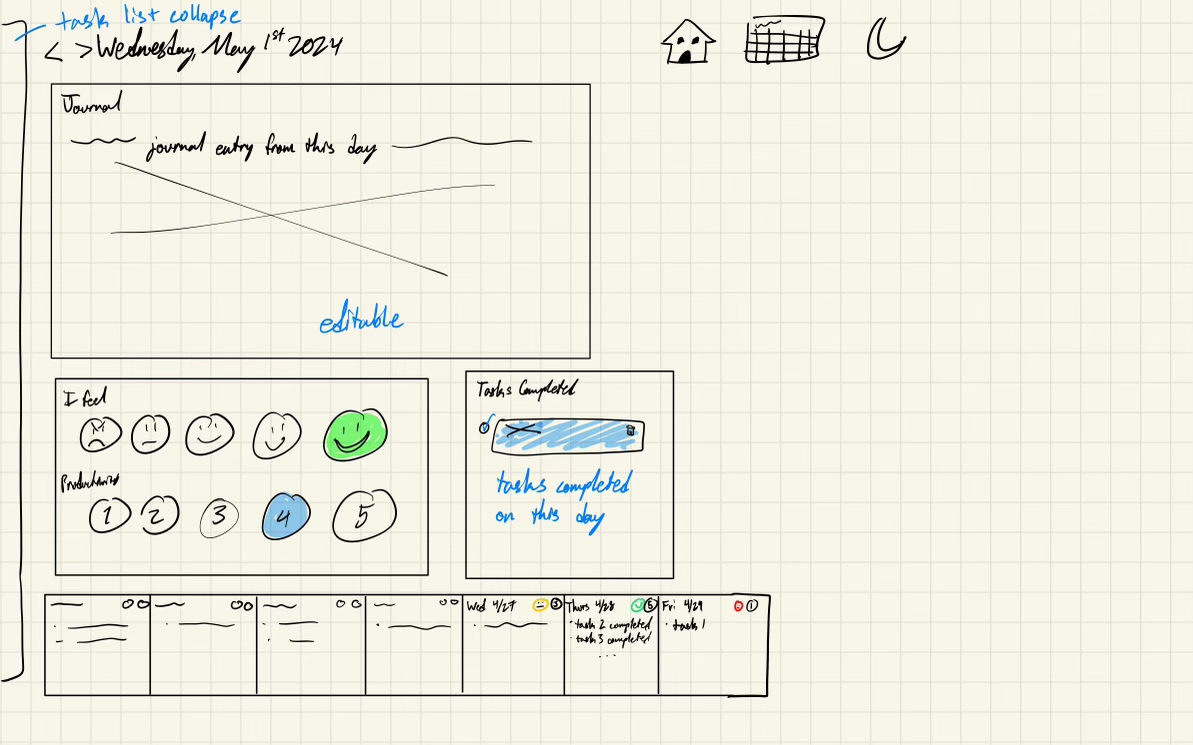 task list collapse
< > Wednesday, May 1st 2024
Journal
journal entry from this day
editable
I feel
Productivity
1 2 3 4 5
Tasks Completed
tasks completed
on this day
Wed 4/27 3
Thurs 4/28 5
· task 2 completed
· task 3 completed
...
Fri 4/29 1
· task 1